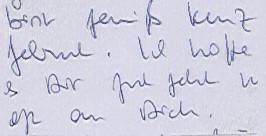 bist gewiß kurz
. Ich hoffe
s Dir gut geht u
an Dich.